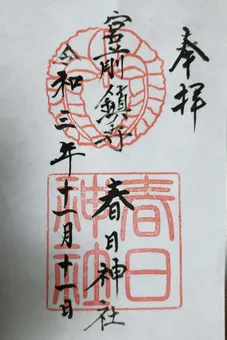 奉拝
鎮守
春日神社
令和三年十一月十一日
春日
神社